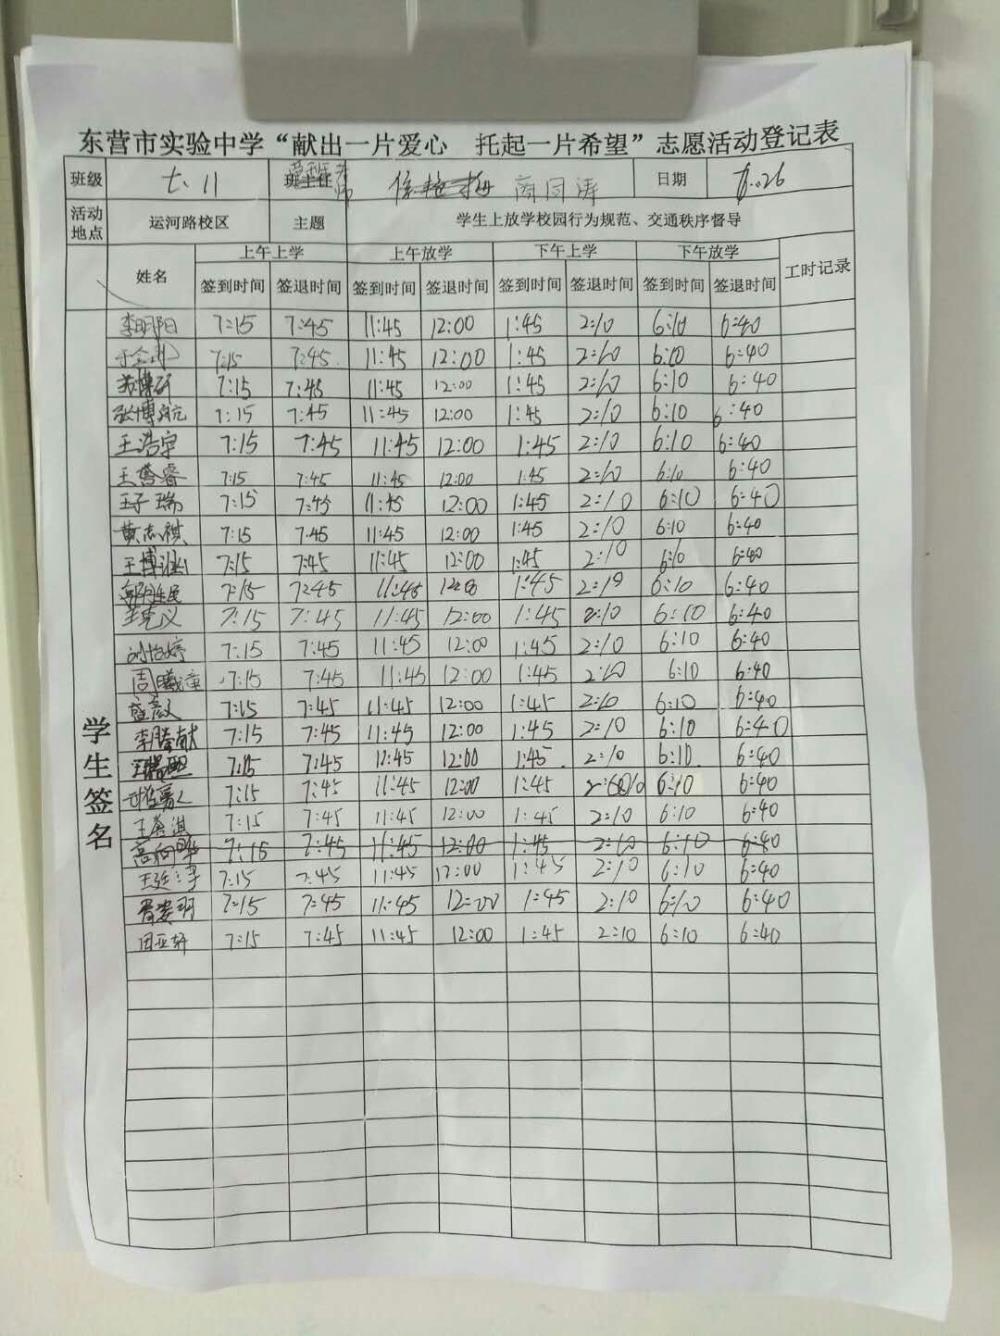 东营市实验中学“献出一片爱心 托起一片希望”志愿活动登记表
班级 七.11 商同涛 日期
活动地点 运河路校区 主题 学生上放学校园行为规范、交通秩序督导
姓名 上午上学 上午放学 下午上学 下午放学 工时记录
签到时间 签退时间 签到时间 签退时间 签到时间 签退时间 签到时间 签退时间
学生签名
李明阳 7:15 7:45 11:45 12:00 1:45 2:10 6:10 6:40
7:15 7:45 11:45 12:00 1:45 2:10 6:10 6:40
7:15 7:45 11:45 12:00 1:45 2:10 6:10 6:40
张博航 7:15 7:45 11:45 12:00 1:45 2:10 6:10 6:40
王浩宇 7:15 7:45 11:45 12:00 1:45 2:10 6:10 6:40
7:15 7:45 11:45 12:00 1:45 2:10 6:10 6:40
王子瑞 7:15 7:45 11:45 12:00 1:45 2:10 6:10 6:40
黄志祺 7:15 7:45 11:45 12:00 1:45 2:10 6:10 6:40
7:15 7:45 11:45 12:00 1:45 2:10 6:10 6:40
7:15 7:45 11:45 12:00 1:45 2:10 6:10 6:40
7:15 7:45 11:45 12:00 1:45 2:10 6:10 6:40
刘怡婷 7:15 7:45 11:45 12:00 1:45 2:10 6:10 6:40
周曦潼 7:15 7:45 11:45 12:00 1:45 2:10 6:10 6:40
7:15 7:45 11:45 12:00 1:45 2:10 6:10 6:40
李腾献 7:15 7:45 11:45 12:00 1:45 2:10 6:10 6:40
7:15 7:45 11:45 12:00 1:45 2:10 6:10 6:40
7:15 7:45 11:45 12:00 1:45 6:10 6:40
7:15 7:45 11:45 12:00 1:45 2:10 6:10 6:40
7:15 7:45 11:45 12:00 1:45 2:10 6:10 6:40
7:15 7:45 11:45 12:00 1:45 2:10 6:10 6:40
7:15 7:45 11:45 12:00 1:45 2:10 6:10 6:40
田亚轩 7:15 7:45 11:45 12:00 1:45 2:10 6:10 6:40